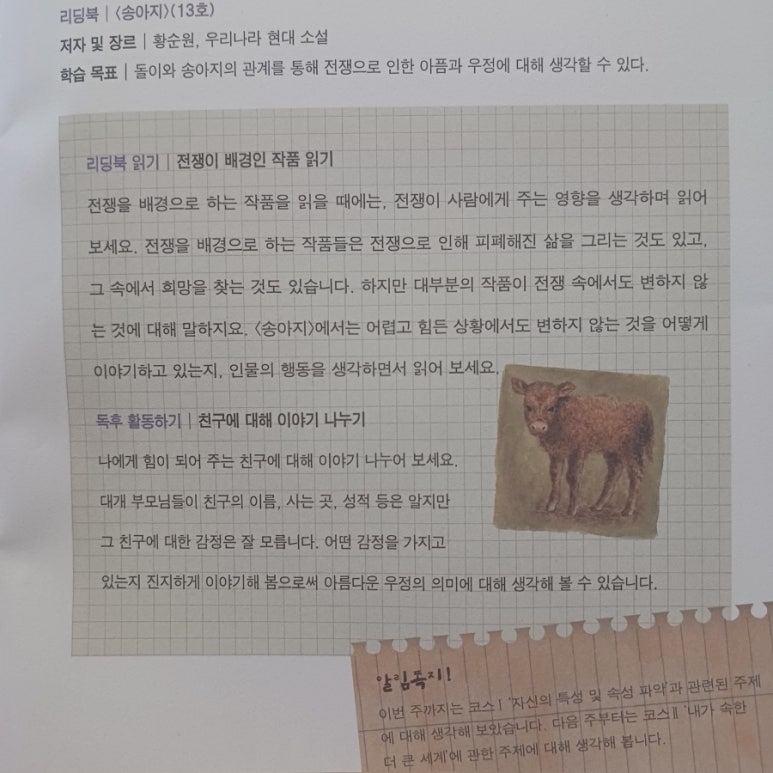 리딩북 | 〈송아지〉(13호)
저자 및 장르 | 황순원, 우리나라 현대 소설
학습 목표 | 돌이와 송아지의 관계를 통해 전쟁으로 인한 아픔과 우정에 대해 생각할 수 있다.
리딩북 읽기 | 전쟁이 배경인 작품 읽기
전쟁을 배경으로 하는 작품을 읽을 때에는, 전쟁이 사람에게 주는 영향을 생각하며 읽어
보세요. 전쟁을 배경으로 하는 작품들은 전쟁으로 인해 피폐해진 삶을 그리는 것도 있고,
그 속에서 희망을 찾는 것도 있습니다. 하지만 대부분의 작품이 전쟁 속에서도 변하지 않
는 것에 대해 말하지요. 〈송아지〉에서는 어렵고 힘든 상황에서도 변하지 않는 것을 어떻게
이야기하고 있는지, 인물의 행동을 생각하면서 읽어 보세요.
독후 활동하기 | 친구에 대해 이야기 나누기
나에게 힘이 되어 주는 친구에 대해 이야기 나누어 보세요.
대개 부모님들이 친구의 이름, 사는 곳, 성적 등은 알지만
그 친구에 대한 감정은 잘 모릅니다. 어떤 감정을 가지고
있는지 진지하게 이야기해 봄으로써 아름다운 우정의 의미에 대해 생각해 볼 수 있습니다.
알림쪽지!
이번 주까지는 코스Ⅰ '자신의 특성 및 속성 파악'과 관련된 주제
에 대해 생각해 보았습니다. 다음 주부터는 코스Ⅱ '내가 속한
더 큰 세계'에 관한 주제에 대해 생각해 봅니다.